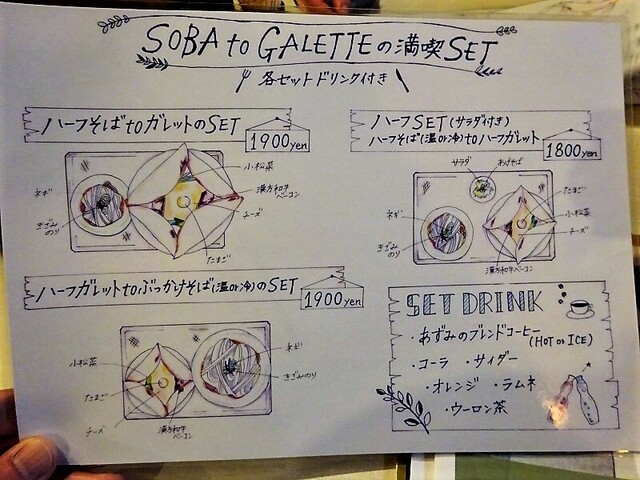 SOBA to GALETTEの満喫SET
各セットドリンク付き
ハーフそばtoガレットのSET
1900yen
小松菜
漢方和牛
ベーコン
チーズ
たまご
ネギ
きざみ
のり
ハーフSET(サラダ付き)
ハーフそば(温or冷)toハーフガレット
1800yen
サラダ
あげそば
たまご
小松菜
チーズ
漢方和牛ベーコン
ネギ
きざみ
のり
ハーフガレットtoぶっかけそば(温or冷)のSET
1900yen
小松菜
たまご
チーズ
漢方和牛
ベーコン
ネギ
きざみのり
SET DRINK
・あずみのブレンドコーヒー
(HOT or ICE)
・コーラ ・サイダー
・オレンジ ・ラムネ
・ウーロン茶